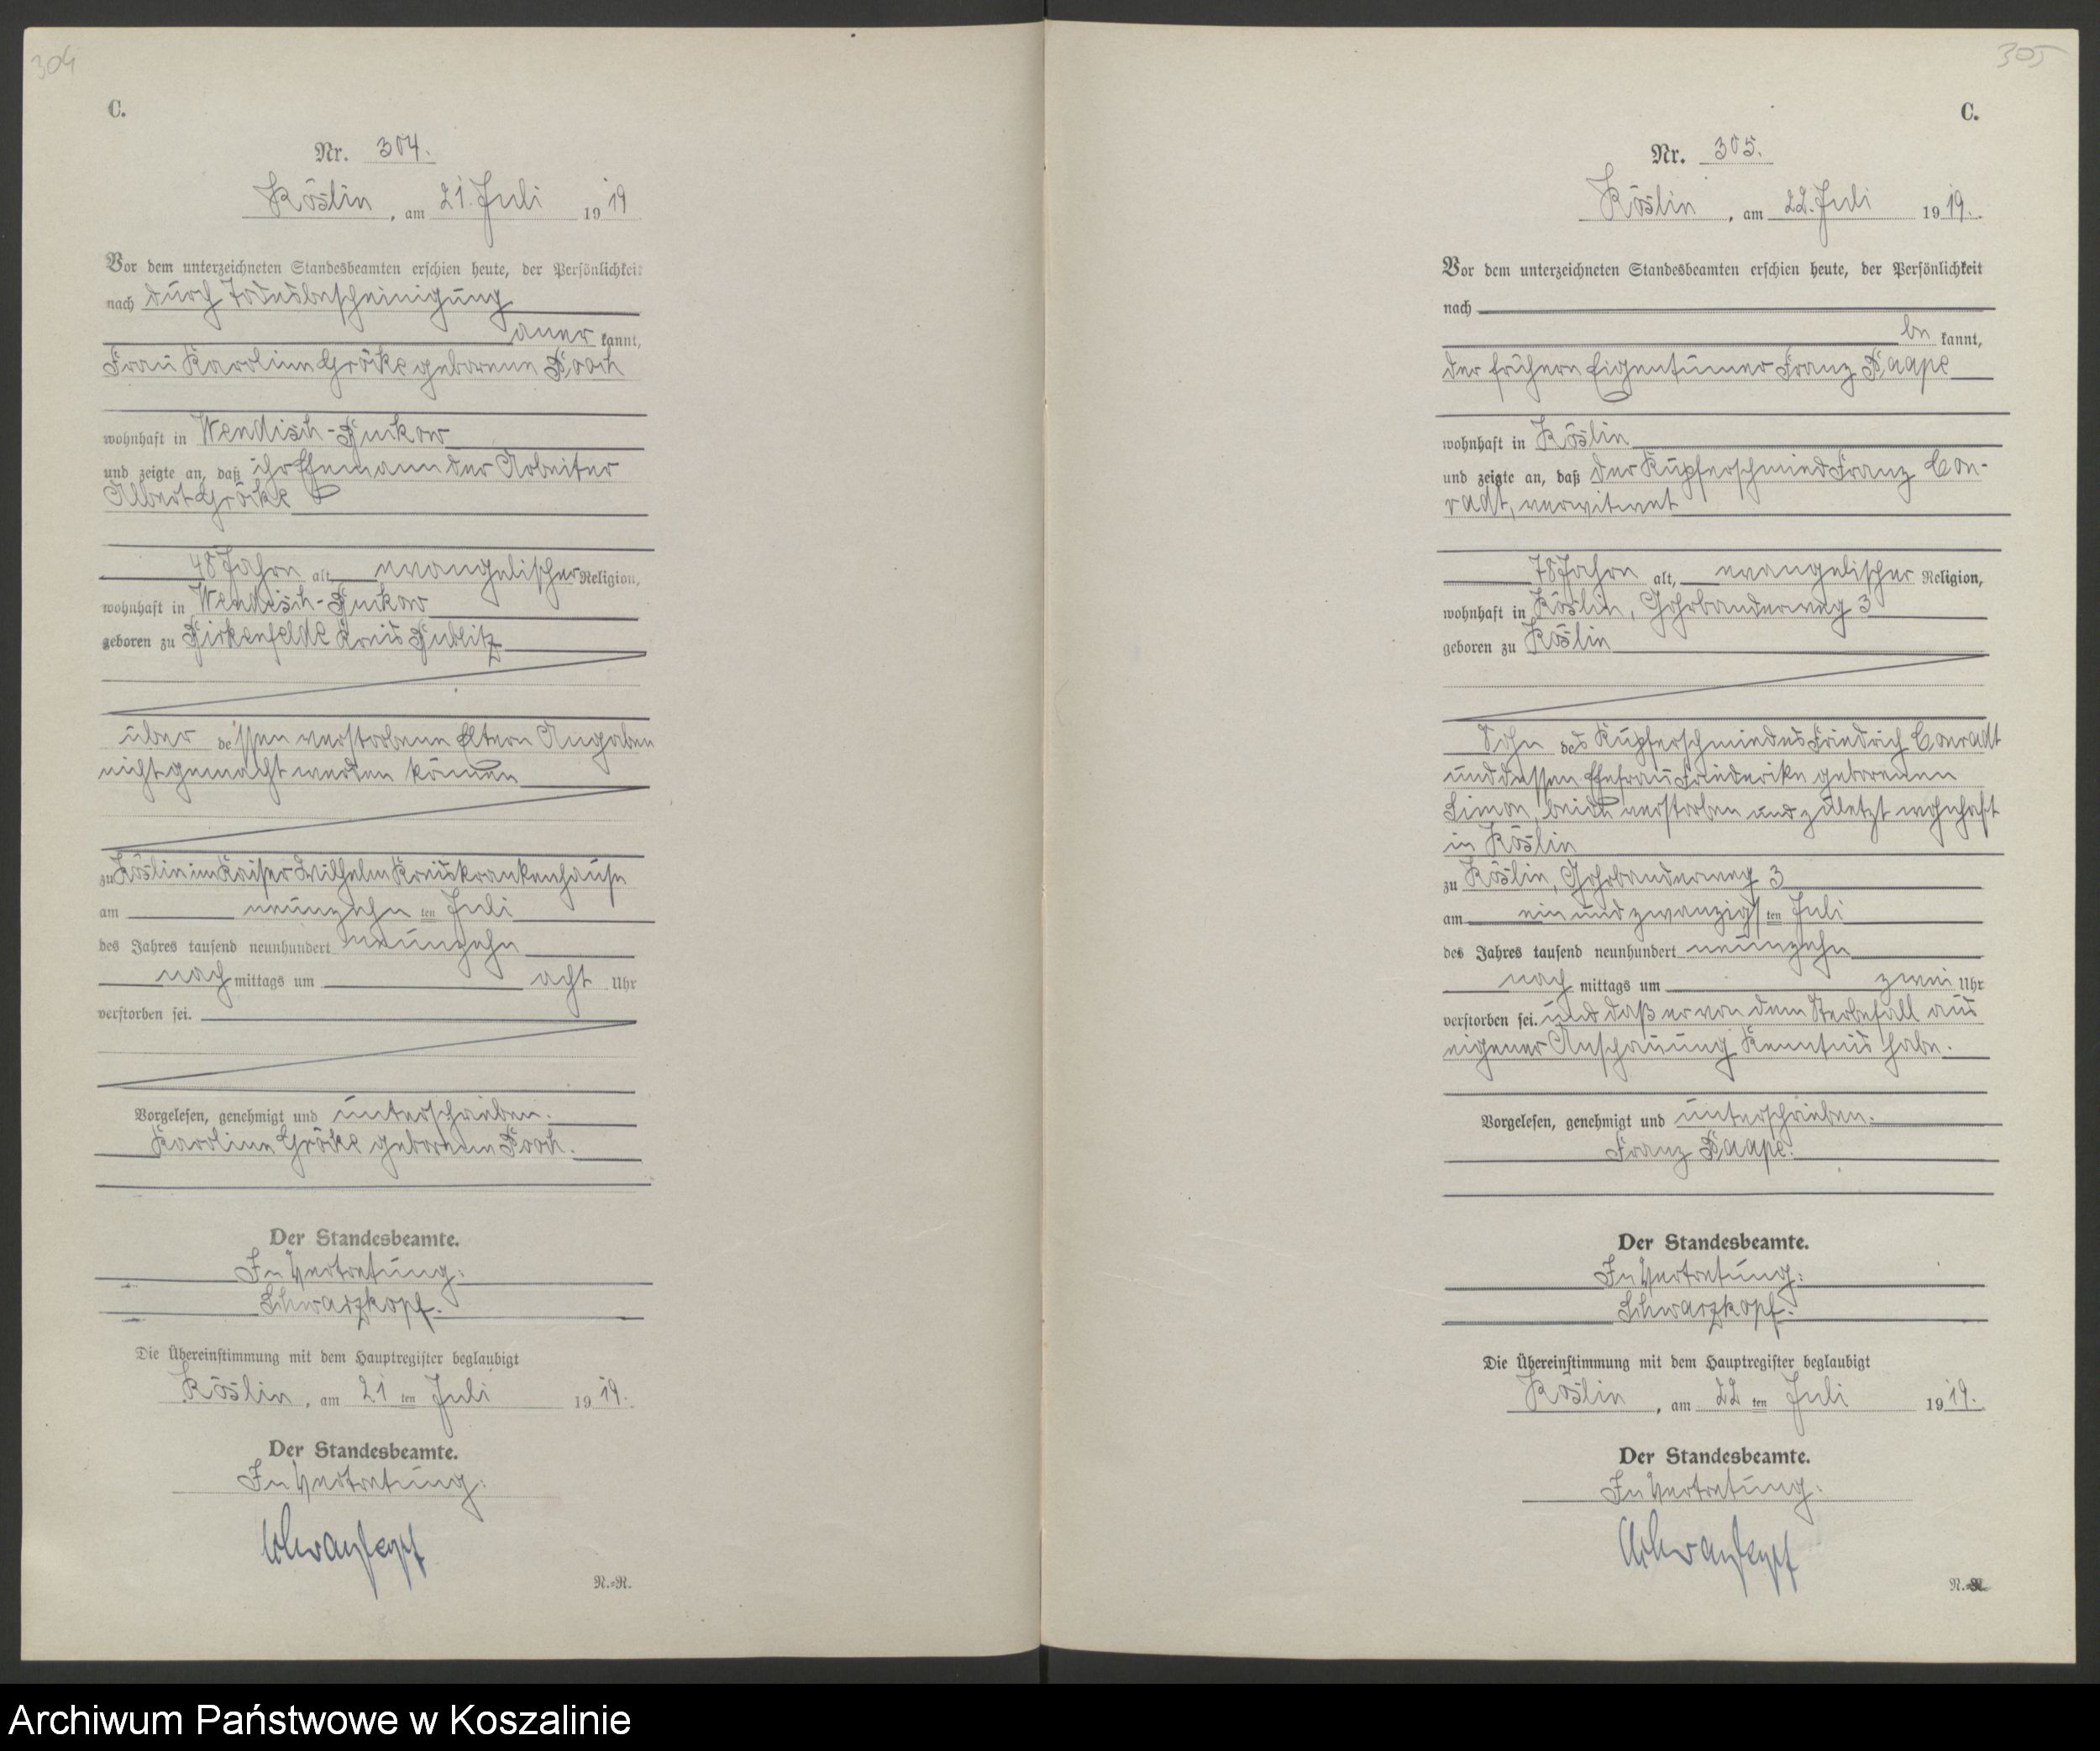 304
C.
Nr. 304.
Köslin, am 21. Juli 1919
Vor dem unterzeichneten Standesbeamten erschien heute, der Persönlichkeit
nach durch Todesbescheinigung
aner kannt,
Frau Karoline Gröke geborene Book
wohnhaft in Wendisch-Buckow
und zeigte an, daß ihr Ehemann der Arbeiter
Albert Gröke
48 Jahre alt, evangelischer Religion,
wohnhaft in Wendisch-Buckow
geboren zu Birkenfelde Kreis Bublitz
über dessen verstorbene Eltern Angaben
nicht gemacht werden können
zu Köslin im Kaiser Wilhelm Kreiskrankenhause
am neunzehn ten Juli
des Jahres tausend neunhundert neunzehn
nach mittags um acht Uhr
verstorben sei.
Vorgelesen, genehmigt und unterschrieben.
Karoline Gröke geborene Book.
Der Standesbeamte.
In Vertretung:
Schwarzkopf.
Die Übereinstimmung mit dem Hauptregister beglaubigt
Köslin, am 21 ten Juli 1919.
Der Standesbeamte.
In Vertretung:
Schwarzkopf
N.=R.
305
C.
Nr. 305.
Köslin, am 22. Juli 1919.
Vor dem unterzeichneten Standesbeamten erschien heute, der Persönlichkeit
nach
be kannt,
der frühere Eigentümer Franz Baape
wohnhaft in Köslin
und zeigte an, daß der Kupferschmied Franz Con-
radt, verwitwet
78 Jahre alt, evangelischer Religion,
wohnhaft in Köslin, Gohrbanderweg 3
geboren zu Köslin
Sohn des Kupferschmiedes Friedrich Conradt
und dessen Ehefrau Friederike geborenen
Simon, beide verstorben und zuletzt wohnhaft
in Köslin
zu Köslin, Gohrbanderweg 3
am ein und zwanzigs ten Juli
des Jahres tausend neunhundert neunzehn
nach mittags um zwei Uhr
verstorben sei. und daß er von dem Sterbefall aus
eigener Anschauung Kenntnis habe.
Vorgelesen, genehmigt und unterschrieben.
Franz Baape.
Der Standesbeamte.
In Vertretung:
Schwarzkopf.
Die Übereinstimmung mit dem Hauptregister beglaubigt
Köslin, am 22 ten Juli 1919.
Der Standesbeamte.
In Vertretung:
Schwarzkopf
N.=R.
Archiwum Państwowe w Koszalinie